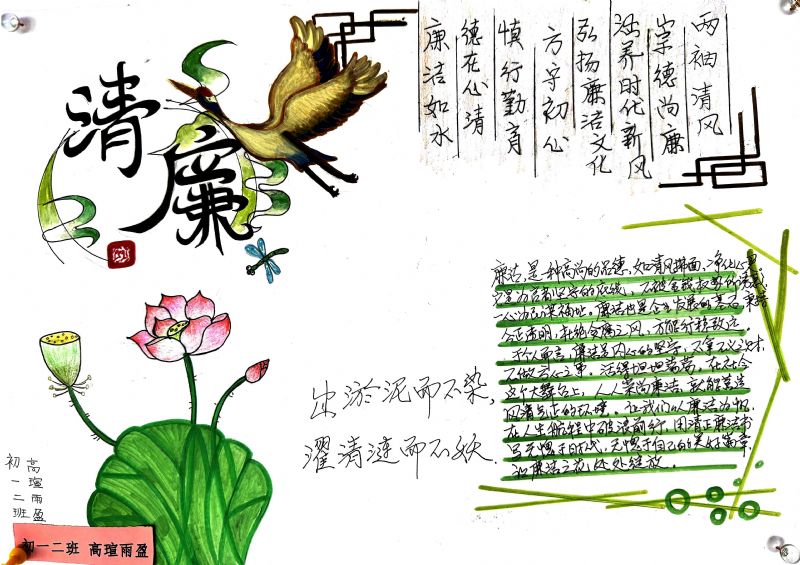 清廉
两袖清风
崇德尚廉
涵养时代新风
弘扬廉洁文化
方守初心
慎行勤育
德在心清
廉洁如水
廉洁,是一种高尚的品德,如清风拂面,净化心灵,
它是为官者坚守的底线,不被金钱权势所诱惑,
一心为民谋福祉。廉洁也是企业发展的基石,秉持
公正透明,杜绝贪腐之风,方能行稳致远。
于个人而言,廉洁是内心的坚守,不拿不义之财,
不做亏心之事,活得坦坦荡荡。在社会
这个大舞台上,人人崇尚廉洁,就能营造
风清气正的环境。让我们以廉洁为帆,
在人生航程中破浪前行,用清正廉洁书
写无愧于时代,无愧于自己的美好篇章,
让廉洁之花处处绽放。
出淤泥而不染,
濯清涟而不妖.
高瑄雨盈
初一二班
初一二班 高瑄雨盈